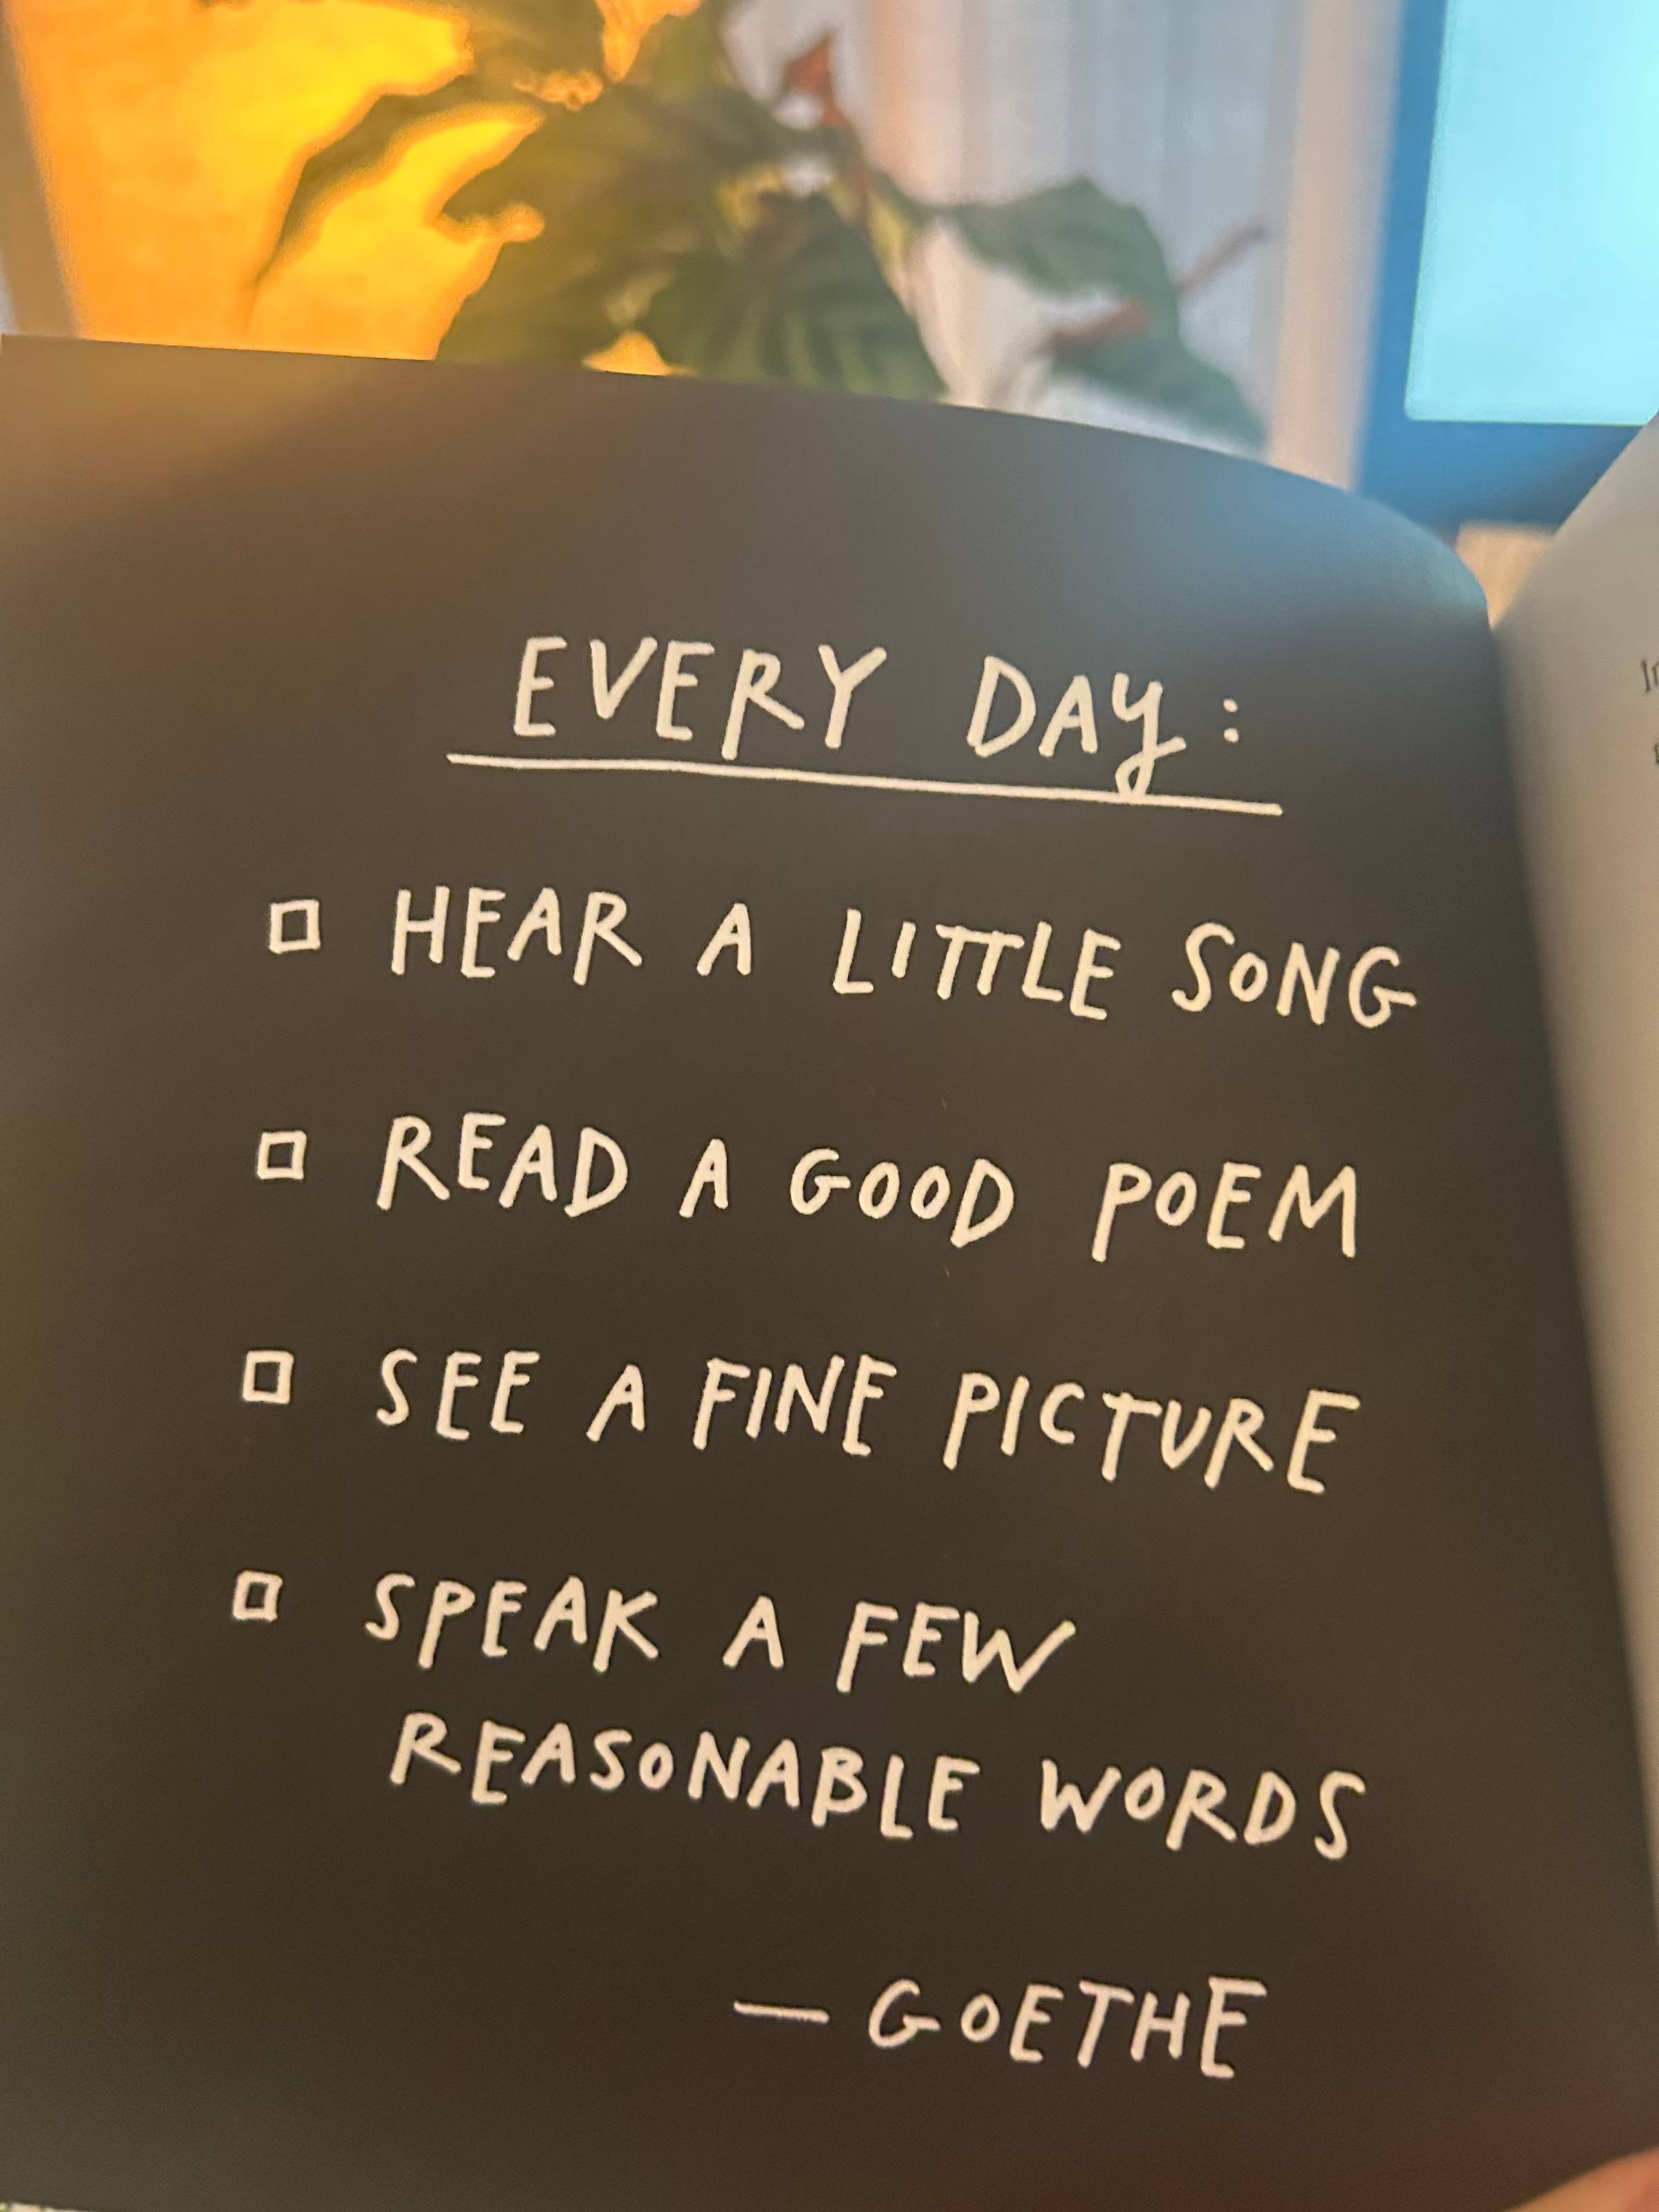 EVERY DAY:
HEAR A LITTLE SONG
READ A GOOD POEM
SEE A FINE PICTURE
SPEAK A FEW
REASONABLE WORDS
— GOETHE